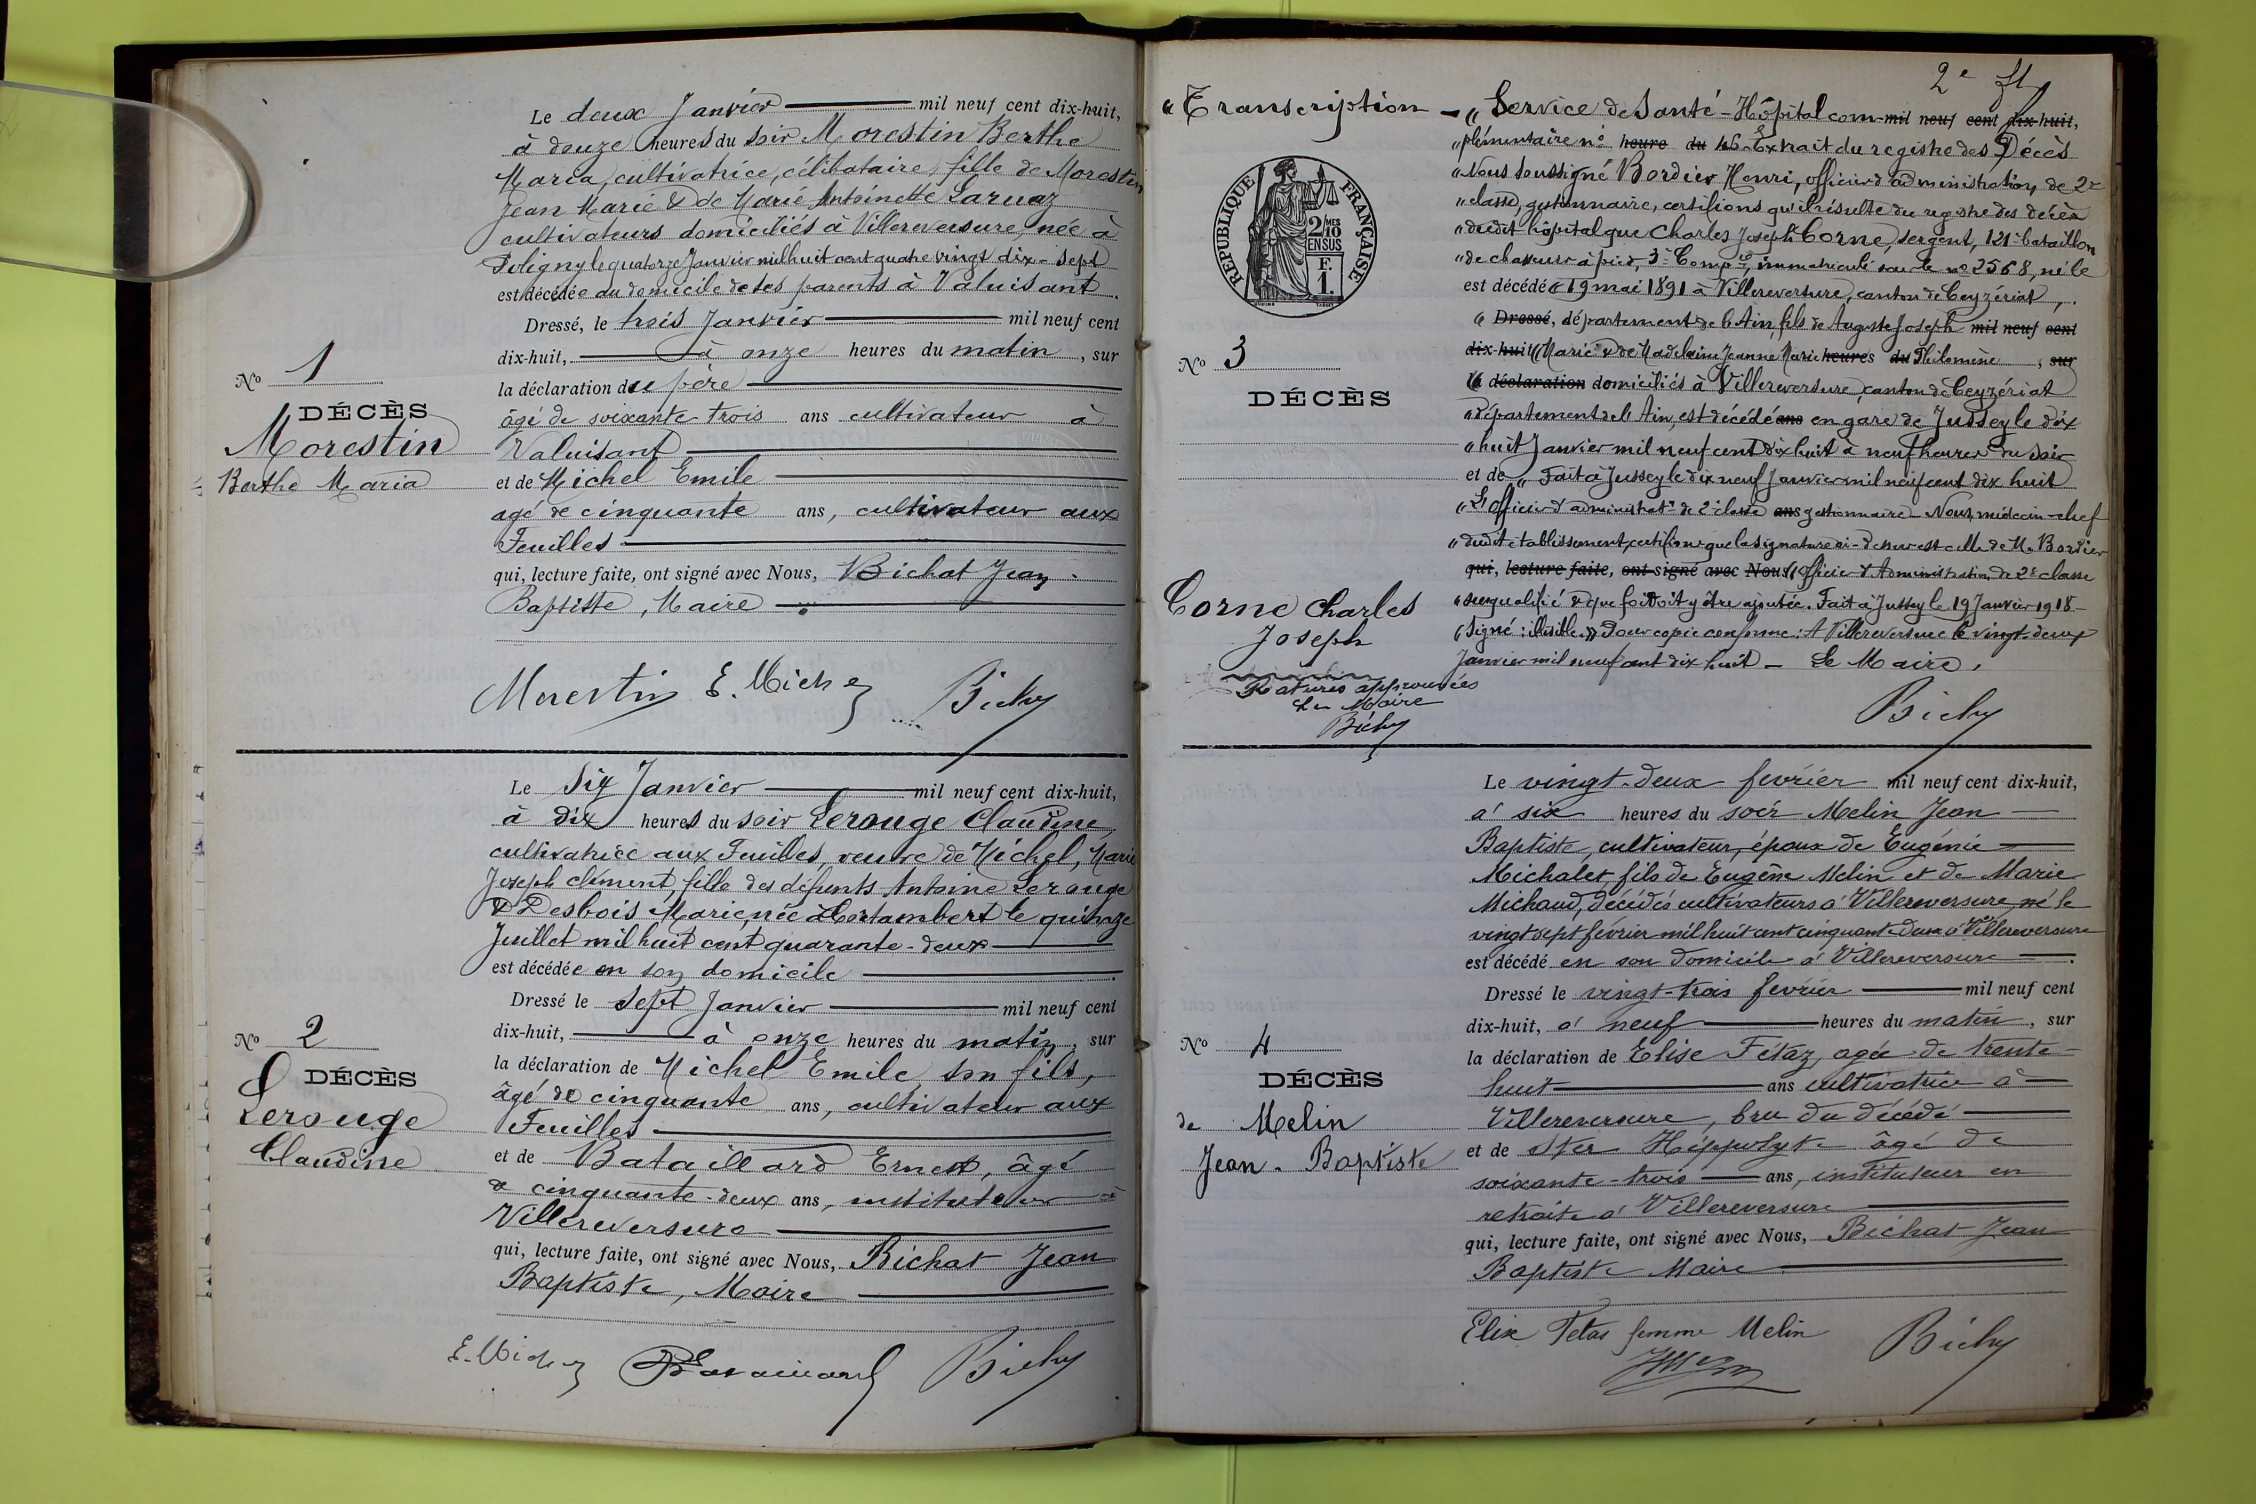 Le deux Janvier mil neuf cent dix-huit,
à douze heures du soir Morestin Berthe
Maria, cultivatrice, célibataire, fille de Morestin
Jean Marie & de Marie Antoinette Laruaz
cultivateurs domiciliés à Villereversure, née à
Poligny le quatorze Janvier mil huit cent quatre vingt dix-sept
est décédée au domicile de ses parents à Valuisant.
Dressé, le trois Janvier mil neuf cent
dix-huit, à onze heures du matin, sur
la déclaration du père
âgé de soixante trois ans cultivateur à
Valuisant
et de Michel Emile
agé de cinquante ans, cultivateur aux
Feuilles
qui, lecture faite, ont signé avec Nous, Bichat Jean
Baptiste, Maire
No 1
DÉCÈS
Morestin
Berthe Maria
Morestin E. Michel Bichy
Le Six Janvier mil neuf cent dix-huit,
à dix heures du soir Lerouge Claudine,
cultivatrice aux Feuilles, veuve de Michel, Marie
Joseph Clément, fille des défunts Antoine Lerouge
& Desbois Marie, née à Hortambert le quinze
Juillet mil huit cent quarante-deux
est décédée en son domicile
Dressé le Sept Janvier mil neuf cent
dix-huit, à onze heures du matin, sur
la déclaration de Michel Emile, son fils,
âgé de cinquante ans, cultivateur aux
Feuilles
et de Bataillard Ernest, âgé
de cinquante-deux ans, instituteur à
Villereversure
qui, lecture faite, ont signé avec Nous, Bichat Jean
Baptiste, Maire
No 2
DÉCÈS
Lerouge
Claudine
E. Michel Bataillard Bichy
2e
"Transcription - "Service de Santé - Hôpital com- mil neuf cent dix-huit,
"plémentaire no heure du 46 Extrait du registre des Décès
"Nous soussigné Bordier Henri, officier d'administration de 2e
"classe, gestionnaire, certifions qu'il résulte du registre des décès
"dudit hôpital que Charles Joseph Corne, sergent, 121e bataillon
"de chasseurs à pied, 3e Compie, immatriculé sous le no 2568, né le
est décédé "19 mai 1891 à Villereversure, canton de Ceyzériat,
" Dressé, département de l'Ain, fils de Auguste Joseph mil neuf cent
dix-huit "Marie & de Madeleine Jeanne Marie heures du Philomène, sur
la déclaration domiciliés à Villereversure, canton de Ceyzériat
"département de l'Ain, est décédé ans en gare de Jussey le dix
"huit Janvier mil neuf cent dix huit à neuf heures du soir
et de " Fait à Jussey le dix neuf Janvier mil neuf cent dix huit
"L'officier d'administratn de 2e classe ans gestionnaire - Nous, médecin-chef
"dudit établissement, certifions que la signature ci-dessus est celle de M. Bordier
qui, lecture faite, ont signé avec Nous "officier d'Administration de 2e classe
"susqualifié & que foi doit y être ajoutée. Fait à Jussey le 19 Janvier 1918 -
"Signé : illisible" Pour copie conforme : A Villereversure le vingt-deux
Janvier mil neuf cent dix huit - Le Maire,
Bichy
RÉPUBLIQUE FRANÇAISE
2 MES
10
EN SUS
F.
1.
No 3
DÉCÈS
Corne Charles
Joseph
Ratures approuvées
Le Maire
Bichy
Le vingt-deux février mil neuf cent dix-huit,
à six heures du soir Melin Jean
Baptiste, cultivateur, époux de Eugénie
Michalet, fils de Eugène Melin et de Marie
Michaud, décédés cultivateurs à Villereversure, né le
vingt sept février mil huit cent cinquante deux à Villereversure
est décédé en son domicile à Villereversure.
Dressé le vingt-trois février mil neuf cent
dix-huit, à neuf heures du matin, sur
la déclaration de Elise Fétaz, agée de trente
huit ans cultivatrice à
Villereversure, bru du décédé
et de Ster Hippolyte âgé de
soixante-trois ans, instituteur en
retraite à Villereversure
qui, lecture faite, ont signé avec Nous, Bichat Jean
Baptiste Maire
No 4
DÉCÈS
de Melin
Jean-Baptiste
Elise Fetas femme Melin Bichy